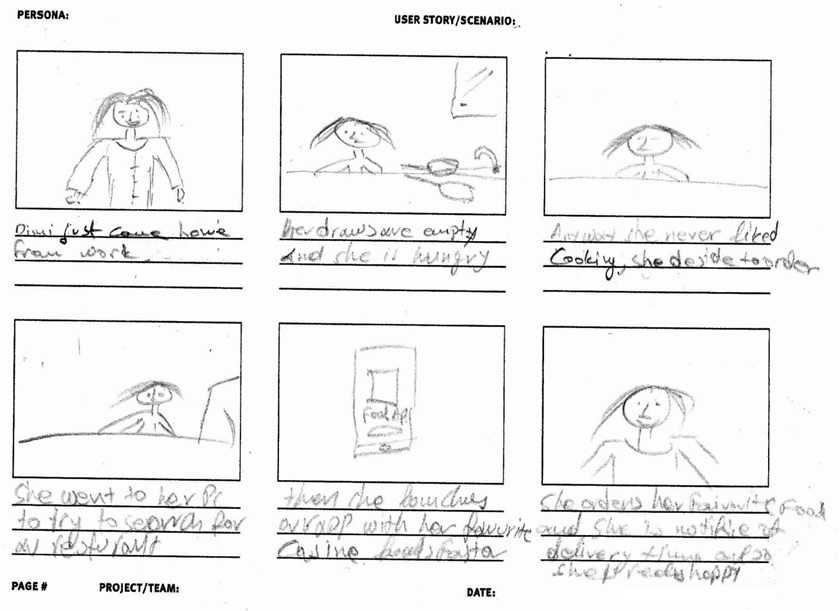 PERSONA:
USER STORY/SCENARIO:
Dimi just came home
from work
Her draws are empty
And she is hungry
Anyway she never liked
Cooking, she deside to order
She went to her Pc
to try to search for
resturant
Food App
then she
our app with her favourite
Cusine
She orders her Faivourite Food
and she is notifie of
delivery time
she feeds happy
PAGE #
PROJECT/TEAM:
DATE: